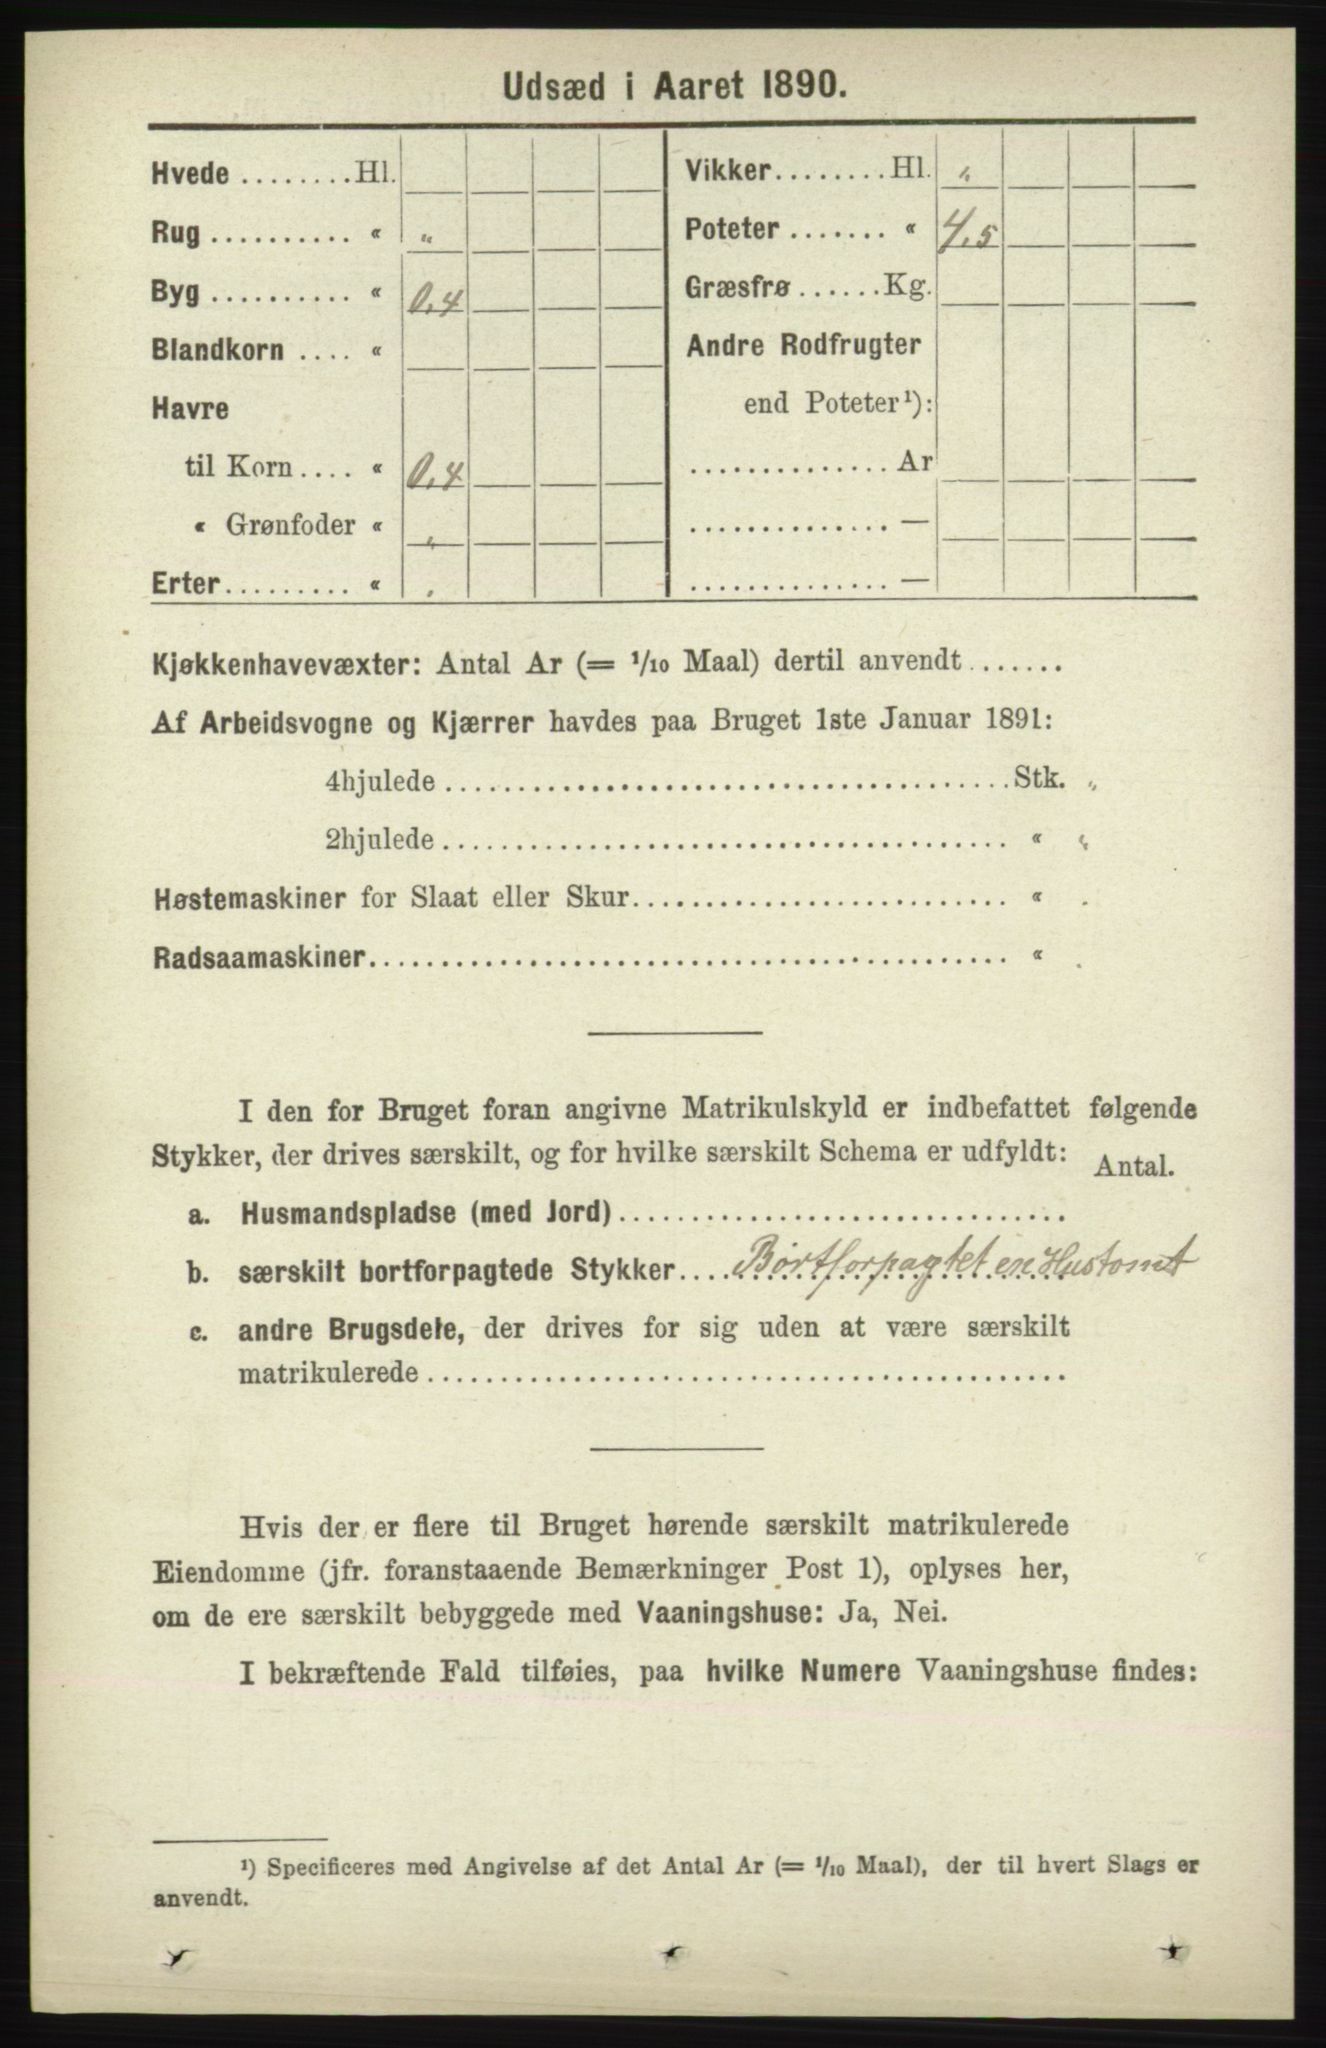 Udsæd i Aaret 1890.
Hvede ........Hl.
Rug .......... « „
Byg .......... « 0,4
Blandkorn .... «
Havre
til Korn .... « 0,4
« Grønfoder « „
Erter ......... « .
Vikker........ Hl. „
Poteter ....... « 4,5
Græsfrø ......Kg.
Andre Rodfrugter
end Poteter¹):
.............. Ar
.............. —
.............. —
Kjøkkenhavevæxter: Antal Ar (= 1/10 Maal) dertil anvendt .......
Af Arbeidsvogne og Kjærrer havdes paa Bruget 1ste Januar 1891:
4hjulede ......................................Stk. „
2hjulede ...................................... « „
Høstemaskiner for Slaat eller Skur......................... « .
Radsaamaskiner........................................... « .
I den for Bruget foran angivne Matrikulskyld er indbefattet følgende
Stykker, der drives særskilt, og for hvilke særskilt Schema er udfyldt: Antal.
a. Husmandspladse (med Jord)..............................
b. særskilt bortforpagtede Stykker.... Bortforpagtet en Hustomt
c. andre Brugsdele, der drives for sig uden at være særskilt
matrikulerede ...........................................
Hvis der er flere til Bruget hørende særskilt matrikulerede
Eiendomme (jfr. foranstaaende Bemærkninger Post 1), oplyses her,
om de ere særskilt bebyggede med Vaaningshuse: Ja, Nei.
I bekræftende Fald tilføies, paa hvilke Numere Vaaningshuse findes:
¹) Specificeres med Angivelse af det Antal Ar (= 1/10 Maal), der til hvert Slags er
anvendt.